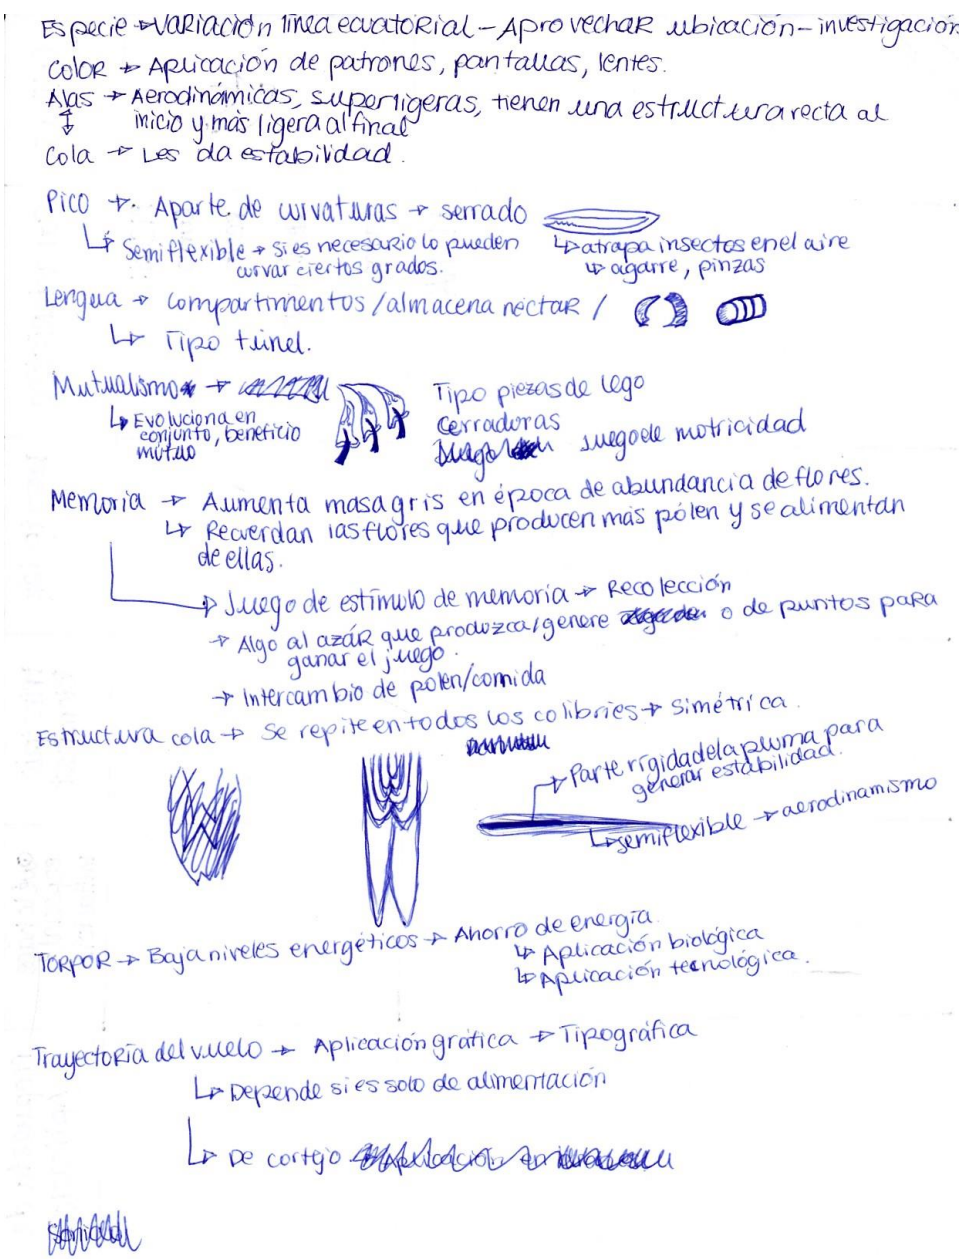 Especie → variación línea ecuatorial – Aprovechar ubicación – investigación
Color → Aplicación de patrones, pantallas, lentes.
Alas → Aerodinámicas, superligeras, tienen una estructura recta al
inicio y más ligera al final
Cola → Les da estabilidad.
Pico → Aparte de curvaturas → serrado
↳ Semiflexible → si es necesario lo pueden
curvar ciertos grados.
↳ atrapa insectos en el aire
↳ agarre, pinzas
Lengua → compartimentos / almacena néctar /
↳ Tipo túnel.
Mutualismo →
↳ Evoluciona en
conjunto, beneficio
mútuo
Tipo piezas de lego
Cerraduras
Juego de motricidad
Memoria → Aumenta masa gris en época de abundancia de flores.
↳ Recuerdan las flores que producen más pólen y se alimentan
de ellas.
→ Juego de estímulo de memoria → Recolección
→ Algo al azár que produzca/genere o de puntos para
ganar el juego.
→ Intercambio de polen/comida
Estructura cola → Se repite en todos los colibries → simétrica.
→ Parte rígida de la pluma para
generar estabilidad.
↳ semiflexible → aerodinamismo
TORPOR → Baja niveles energéticos → Ahorro de energía.
↳ Aplicación biológica
↳ Aplicación tecnológica.
Trayectoria del vuelo → Aplicación gráfica → Tipográfica
↳ Depende si es solo de alimentación
↳ De cortejo